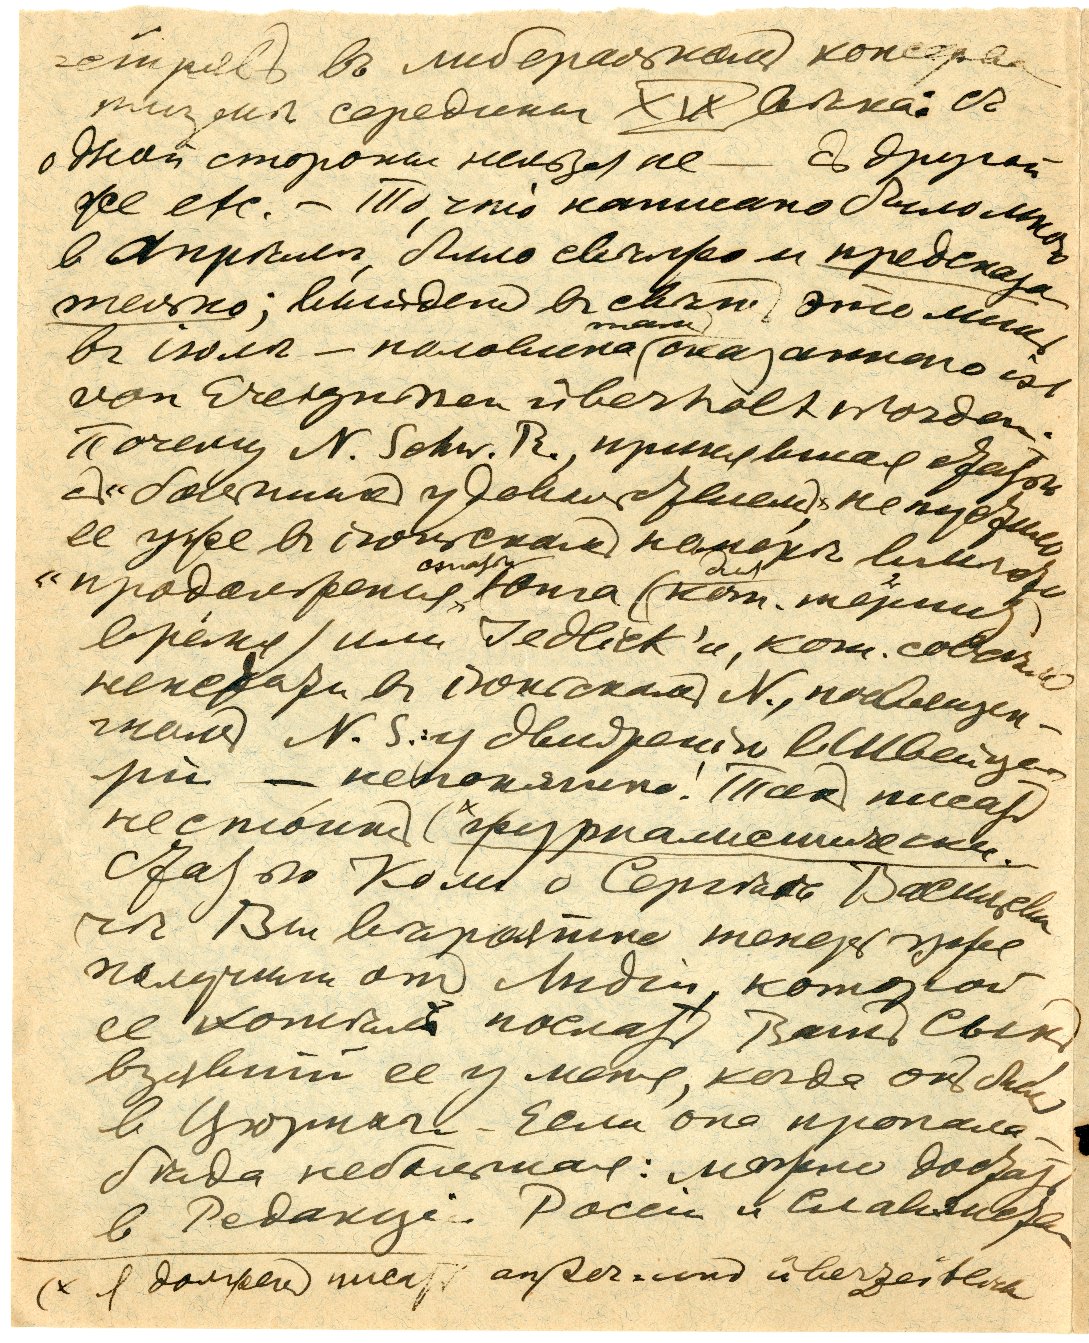 въ либеральномъ консерва
тизмѣ середины XIX вѣка: съ
одной стороны нельзя не — съ другой
же etc. – То, что написано было мною
в Апрѣлѣ, было свѣжо и предсказа
тельно; выйдетъ въ свѣтъ это лишь
въ іюлѣ – половина там сказанного ist
von Ereignissen überholt worden.
Почему N. Schw. R., принявшая статью
съ "большимъ удовольствіемъ", не пустила
ее уже въ іюньскомъ номерѣ вмѣсто
"продолженія" статьи Юнга (кот. для
время) или Jedlick'и, кот. совсѣмъ
не въ іюньскомъ N., посвящен-
номъ N. S.: у движенію въ Швейца
ріи — непонятно! Такъ писать
не стоитъ (x журналистически.
Статью Коли о Сергѣѣ Василіеви
чѣ Вы вѣроятно теперь уже
получили отъ Лидіи, которой
ее послать Вашъ сынъ
взявшій ее у меня, когда онъ былъ
в Цюрихѣ. – Если она пропала –
бѣда небольшая: можно достать
в Редакціи Россіи и Славянства
(x Я долженъ писать ausser- und überzeitlich